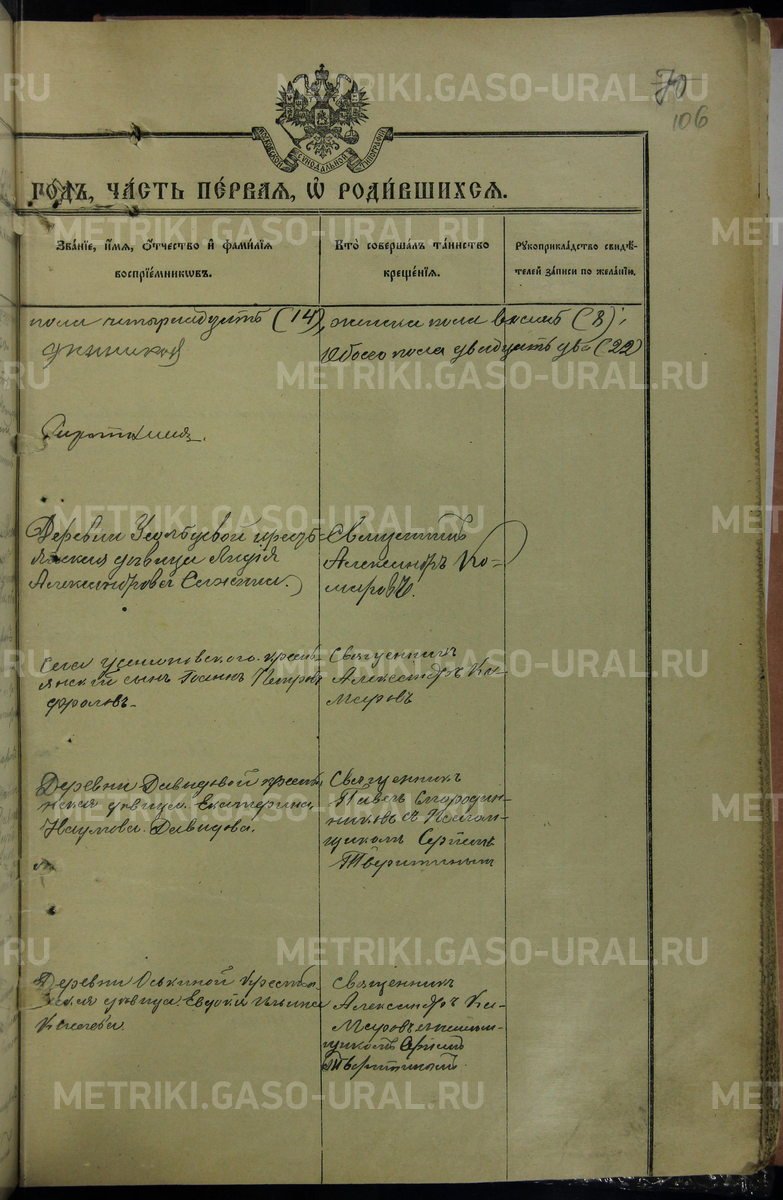 METRIKI.GASO-URAL.RU
70
106
МОСКОВСКОЙ СѴНОДАЛЬНОЙ ТИПОГРАФІИ
ГОДЪ, ЧА́СТЬ ПЕ́РВАЯ, Ѡ РОДИ́ВШИХСЯ.
Зва́ніе, и́мя, о́тчество и҆ фами́лія воспріе́мниковъ.
Кто̀ соверша́лъ та́инство креще́нія.
Рукоприкла́дство свидѣ́телей за́писи по жела́нію.
пола четырнадцать (14), женска пола восемь (8),
Обоего пола двадцать два (22)
Деревни крестьянская девица Лидія
Александрова
Священникъ
Александръ Комаровъ.
Села крестьянскій сынъ Іоаннъ Петровъ
Фроловъ.
Священникъ
Александръ Комаровъ
Деревни Давыдовой крестьянская девица Екатерина
Наумова Давыдова.
Священникъ
Павелъ Смородинниковъ съ Псаломщикомъ Сергіемъ
Тверитинымъ
Деревни Оськиной крестьянская девица Евдокія Ильина
Священникъ
Александръ Комаровъ съ псаломщикомъ Сергіемъ
Тверитинымъ.